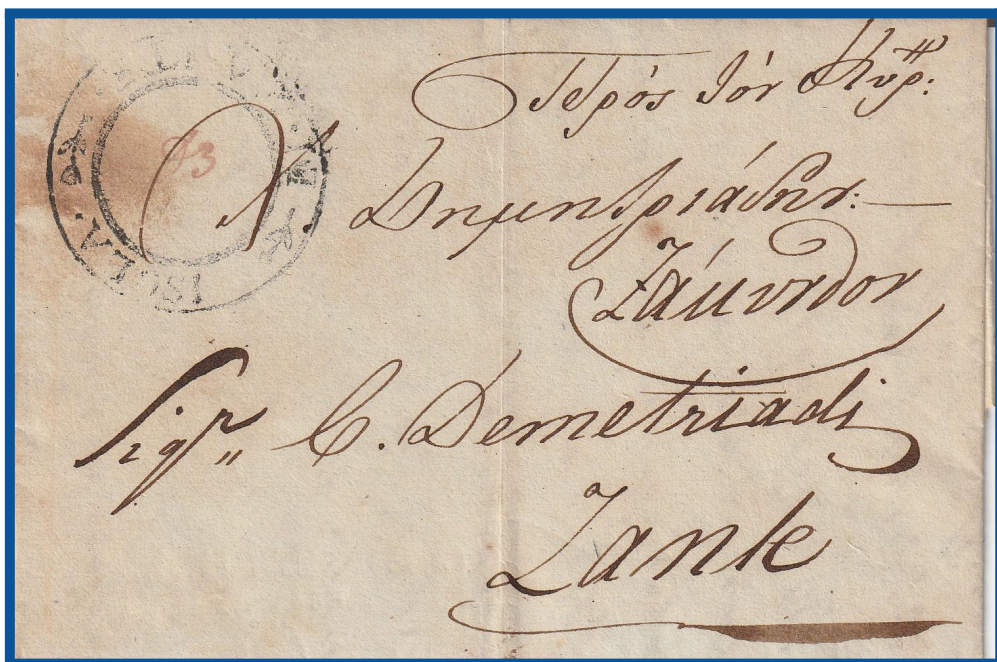 Πρός Τόν Κύρ:
Κ. Δημητριάδην:—
Ζάκυνθον
Sigr„ C. Demetriadi
Zante
ISOLA